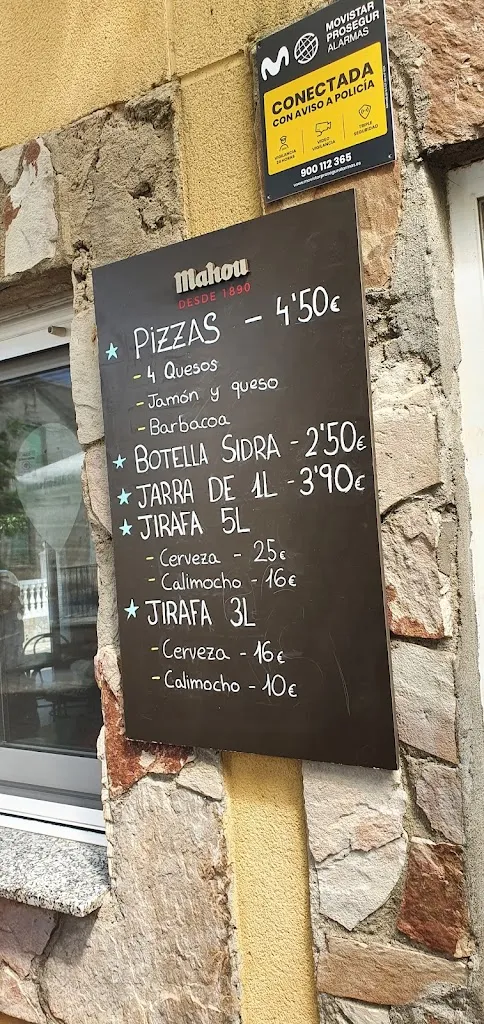 MOVISTAR
PROSEGUR
ALARMAS
CONECTADA
CON AVISO A POLICÍA
VIGILANCIA
24 HORAS
VIDEO
VIGILANCIA
TRIPLE
SEGURIDAD
900 112 365
www.movistarproseguralarmas.es
Mahou
DESDE 1890
PIZZAS - 4'50€
- 4 Quesos
- Jamón y queso
- Barbacoa
BOTELLA SIDRA - 2'50€
JARRA DE 1L - 3'90€
JIRAFA 5L
- Cerveza - 25€
- Calimocho - 16€
JIRAFA 3L
- Cerveza - 16€
- Calimocho - 10€